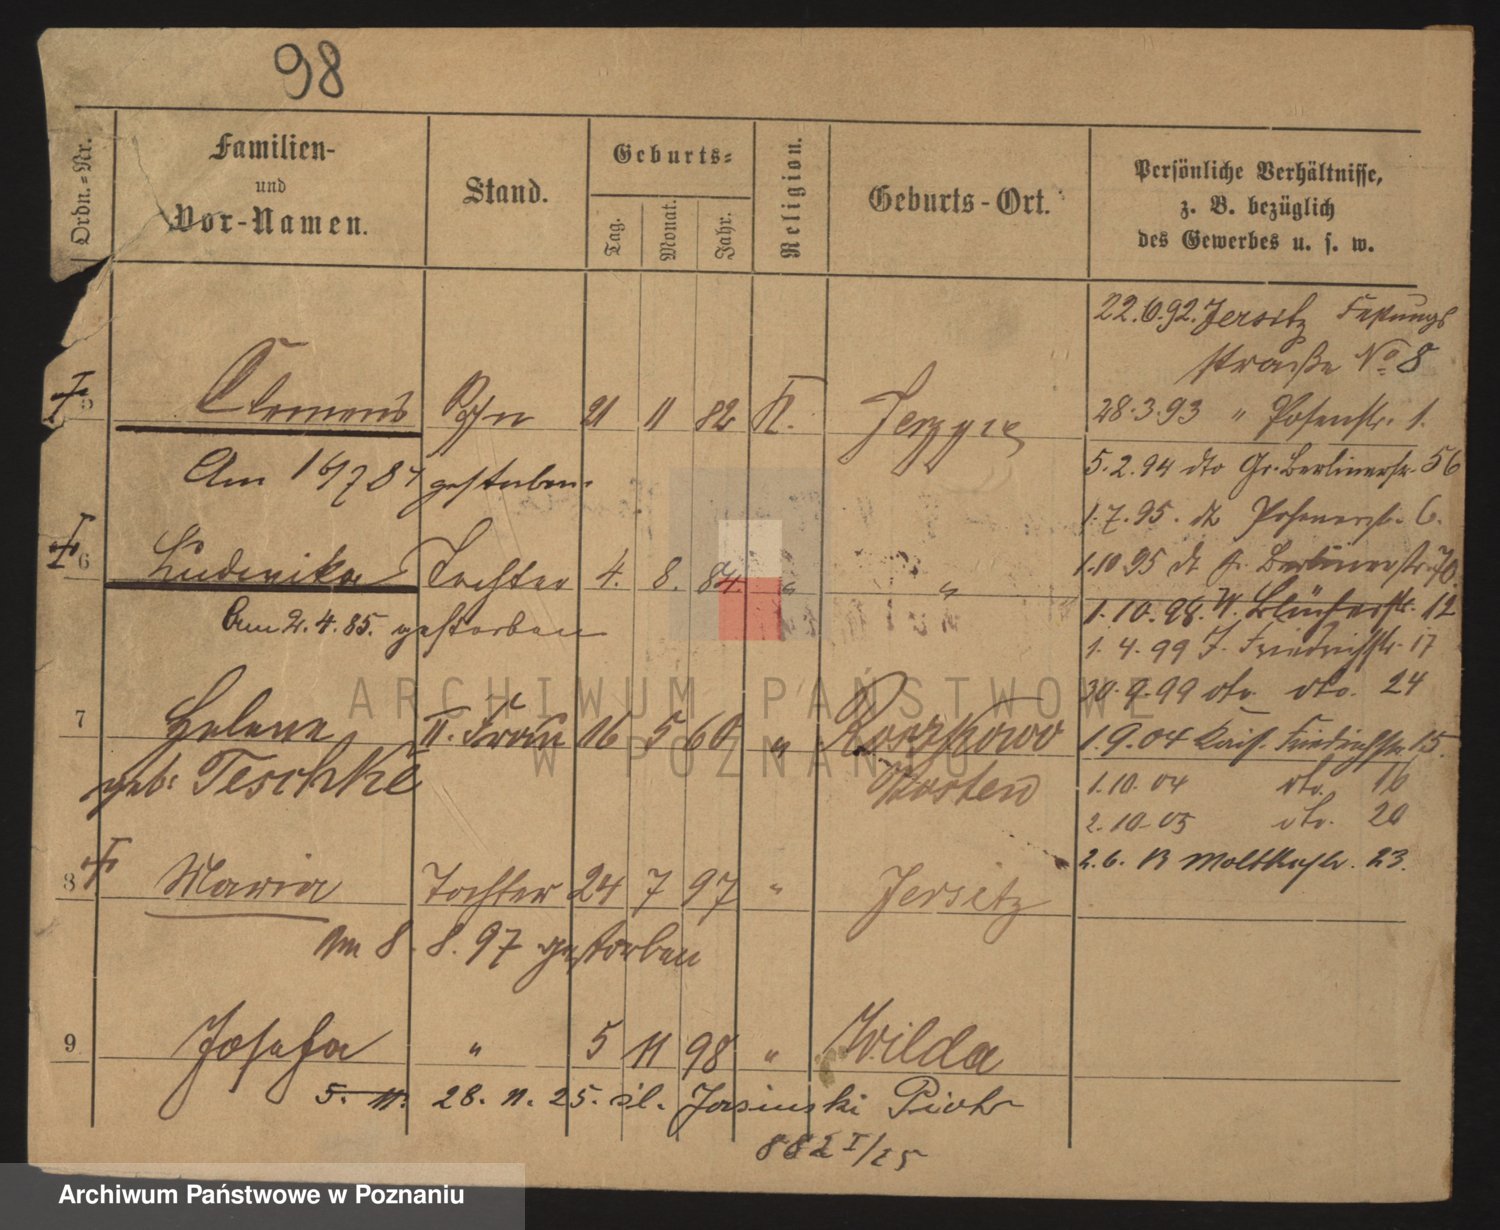 98
Ordn.-Nr.
Familien-
und
Vor-Namen.
Stand.
Geburts-
Tag.
Monat.
Jahr.
Religion.
Geburts-Ort.
Persönliche Verhältnisse,
z. B. bezüglich
des Gewerbes u. s. w.
22.6.92. Jersitz Festungs
straße No 8
5 Clemens Sohn 21 11 82 K. Jerzyce
28.3.93 " Posenstr. 1.
Am gestorben.
5.2.94 dto Gr. Berlinerstr. 56
1.7.95. dt Posenerstr. 6.
6 Ludwika Tochter 4. 8. 84. " "
1.10.95 dt gr. Berlinerstr. 70.
Am 2.4.85. gestorben
1.10.98. W. Blücherstr. 12
1.4.99 J. Friedrichstr. 17
30.9.99 dto. dto. 24
7 Helene II. Frau 16 5 60 "
1.9.04 Kais. Friedrichstr. 15.
geb: Teschke Kosten
1.10.04 dto. 16
2.10.05 dto. 20
2.6. 13 Moltkestr. 23.
8 Maria Tochter 24 7 97 " Jersitz
Am 8. 8. 97 gestorben
9 Josefa " 5 11 98 " Wilda
5. 11. 28. 11. 25. śl. Jasinski Piotr
882 I/25
ARCHIWUM PAŃSTWOWE
W POZNANIU
Archiwum Państwowe w Poznaniu